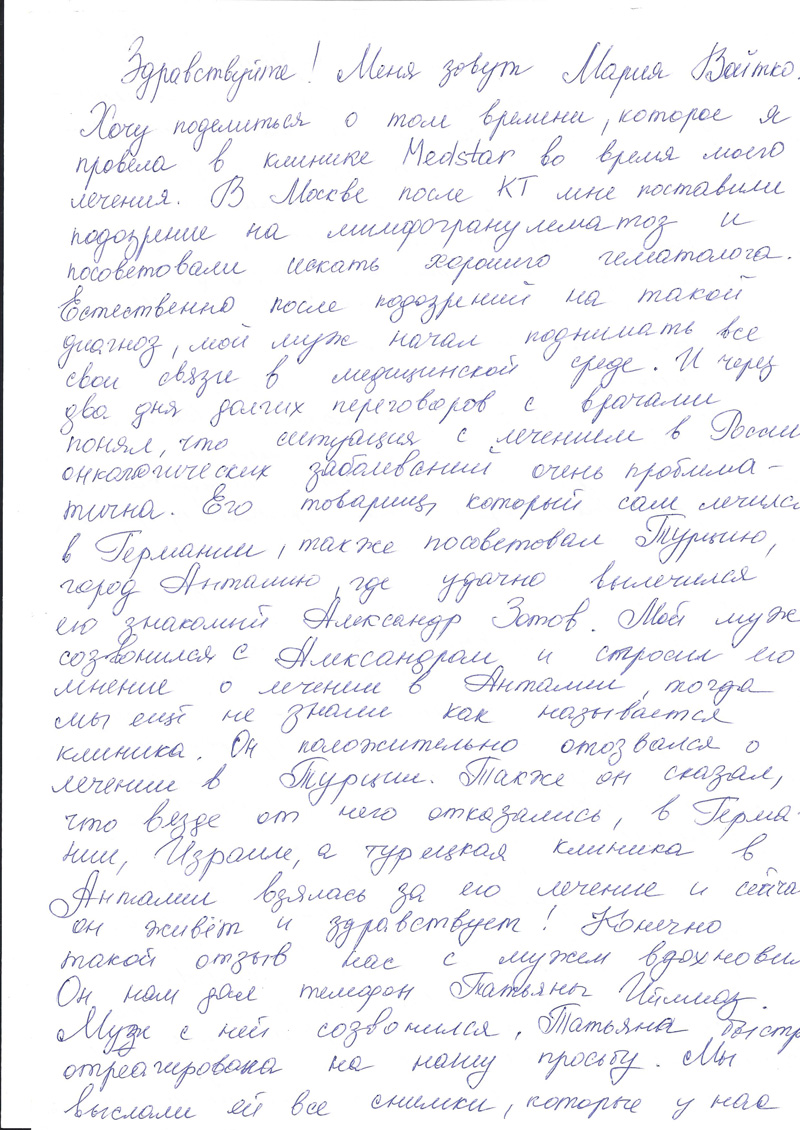 Здравствуйте! Меня зовут Мария Войтко.
Хочу поделиться о том времени, которое я
провела в клинике Medstar во время моего
лечения. В Москве после КТ мне поставили
подозрение на лимфогранулематоз и
посоветовали искать хорошего гематолога.
Естественно после подозрений на такой
диагноз, мой муж начал поднимать все
свои связи в медицинской среде. И через
два дня долгих переговоров с врачами
понял, что ситуация с лечением в России
онкологических заболеваний очень проблема-
тична. Его товарищ, который сам лечился
в Германии, также посоветовал Турцию,
город Анталию, где удачно вылечился
его знакомый Александр Зотов. Мой муж
созвонился с Александром и спросил его
мнение о лечении в Анталии, тогда
мы ещё не знали как называется
клиника. Он положительно отозвался о
лечении в Турции. Также он сказал,
что везде от него отказались, в Герма-
нии, Израиле, а турецкая клиника в
Анталии взялась за его лечение и сейча
он живёт и здравствует! Конечно
такой отзыв нас с мужем вдохновил
Он нам дал телефон Татьяны Йылмаз.
Муж с ней созвонился, Татьяна быстр
отреагировала на нашу просьбу. Мы
выслали ей все снимки, которые у нас